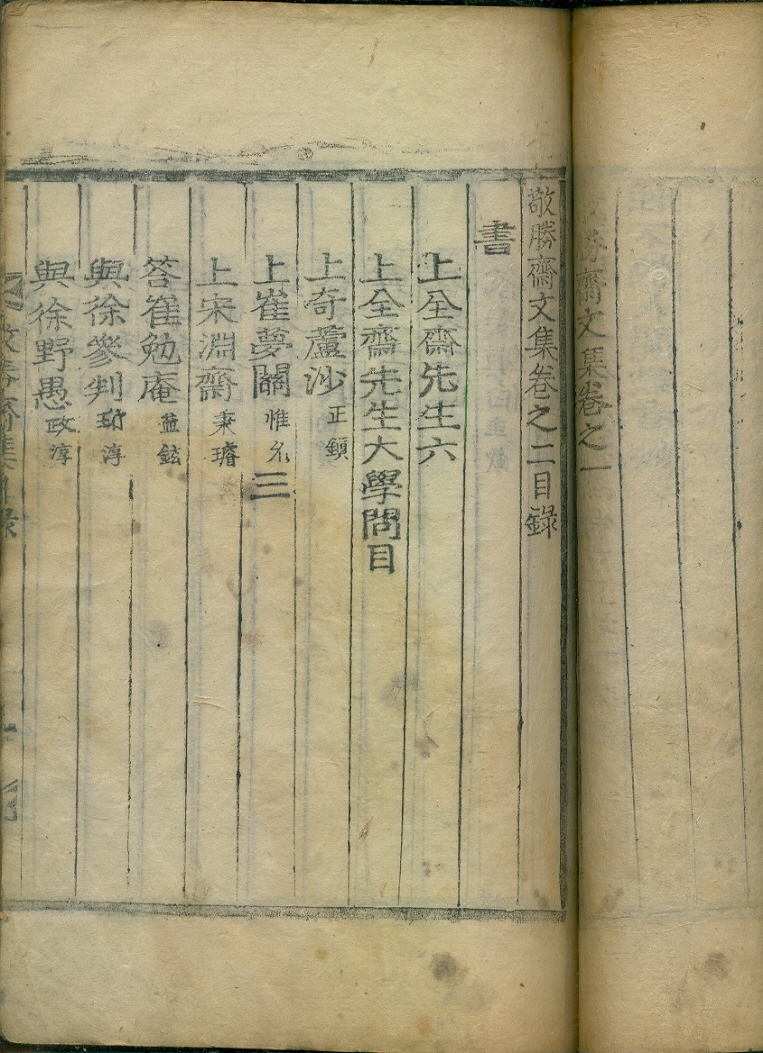 勝齋文集卷之一
敬勝齋文集卷之二目錄
書
上全齋先生六
上全齋先生大學問目
上奇蘆沙正鎭
上崔夢關惟允三
上宋淵齋秉璿
答崔勉庵益鉉
與徐參判珩淳
與徐野愚政淳